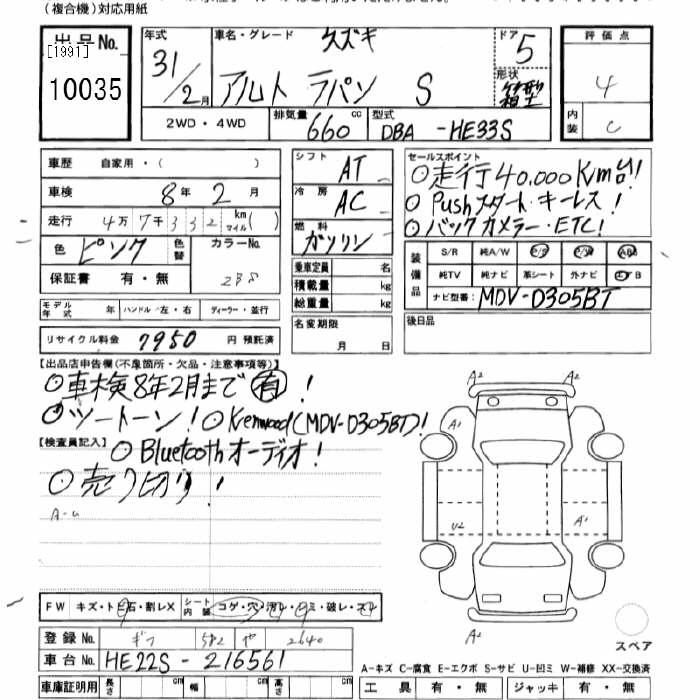 (複合機)対応用紙
出品No.
[1991]
10035
年式
31/2月
車名・グレード
スズキ
アルト ラパン S
ドア
5
形状
箱型
評価点
4
内装
C
2WD・4WD
排気量
660 cc
型式
DBA -HE33S
車歴 自家用・( )
車検 8年 2月
走行 4万7千332 km マイル( )
色 ピンク 色替
カラーNo.
保証書 有・無
モデル年式 年 ハンドル 左・右 ディーラー・並行
リサイクル料金 7950 円 預託済
シフト AT
冷房 AC
燃料 ガソリン
乗車定員 名
積載量 kg
総重量 kg
名変期限
月 日
セールスポイント
○走行40,000Km台!
○Pushスタート・キーレス!
○バックカメラー・ETC!
装備品
S/R 純A/W P/S P/W ABS
純TV 純ナビ 革シート 外ナビ
ナビ型番: MDV-D305BT
後日品
【出品店申告欄(不具箇所・欠品・注意事項等)】
○車検8年2月まで有!
○ツートーン!○Kenwood(MDV-D305BT)!
【検査員記入】
○Bluetoothオーディオ!
○売り切り!
A-U
A2 A2
A1
U2 A1
A2
FW キズ・トビ石・割レX
シート内装 コゲ・穴・汚レ・シミ・破レ・スレ
登録No. ギフ 582 や 2640
車台No. HE22S-216561
スペア
A-キズ C-腐食 E-エクボ S-サビ U-凹ミ W-補修 XX-交換済
車庫証明用 長さ cm 幅 cm 高さ cm
工具 有・無 ジャッキ 有・無